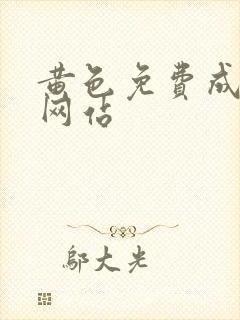 黄色免費成
网站
鄔大光